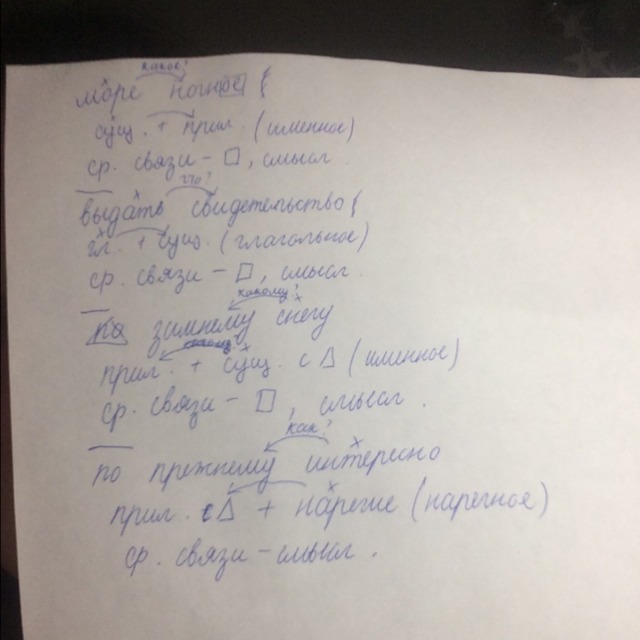 какое?
море ночное {
сущ. + прил. (именное)
ср. связи - □, смысл
что?
выдать свидетельство {
гл. + сущ. (глагольное)
ср. связи - □, смысл.
какому?
по зимнему снегу
прил. + сущ. с Δ (именное)
ср. связи - □, смысл.
как?
по прежнему интересно
прил. с Δ + наречие (наречное)
ср. связи - смысл.